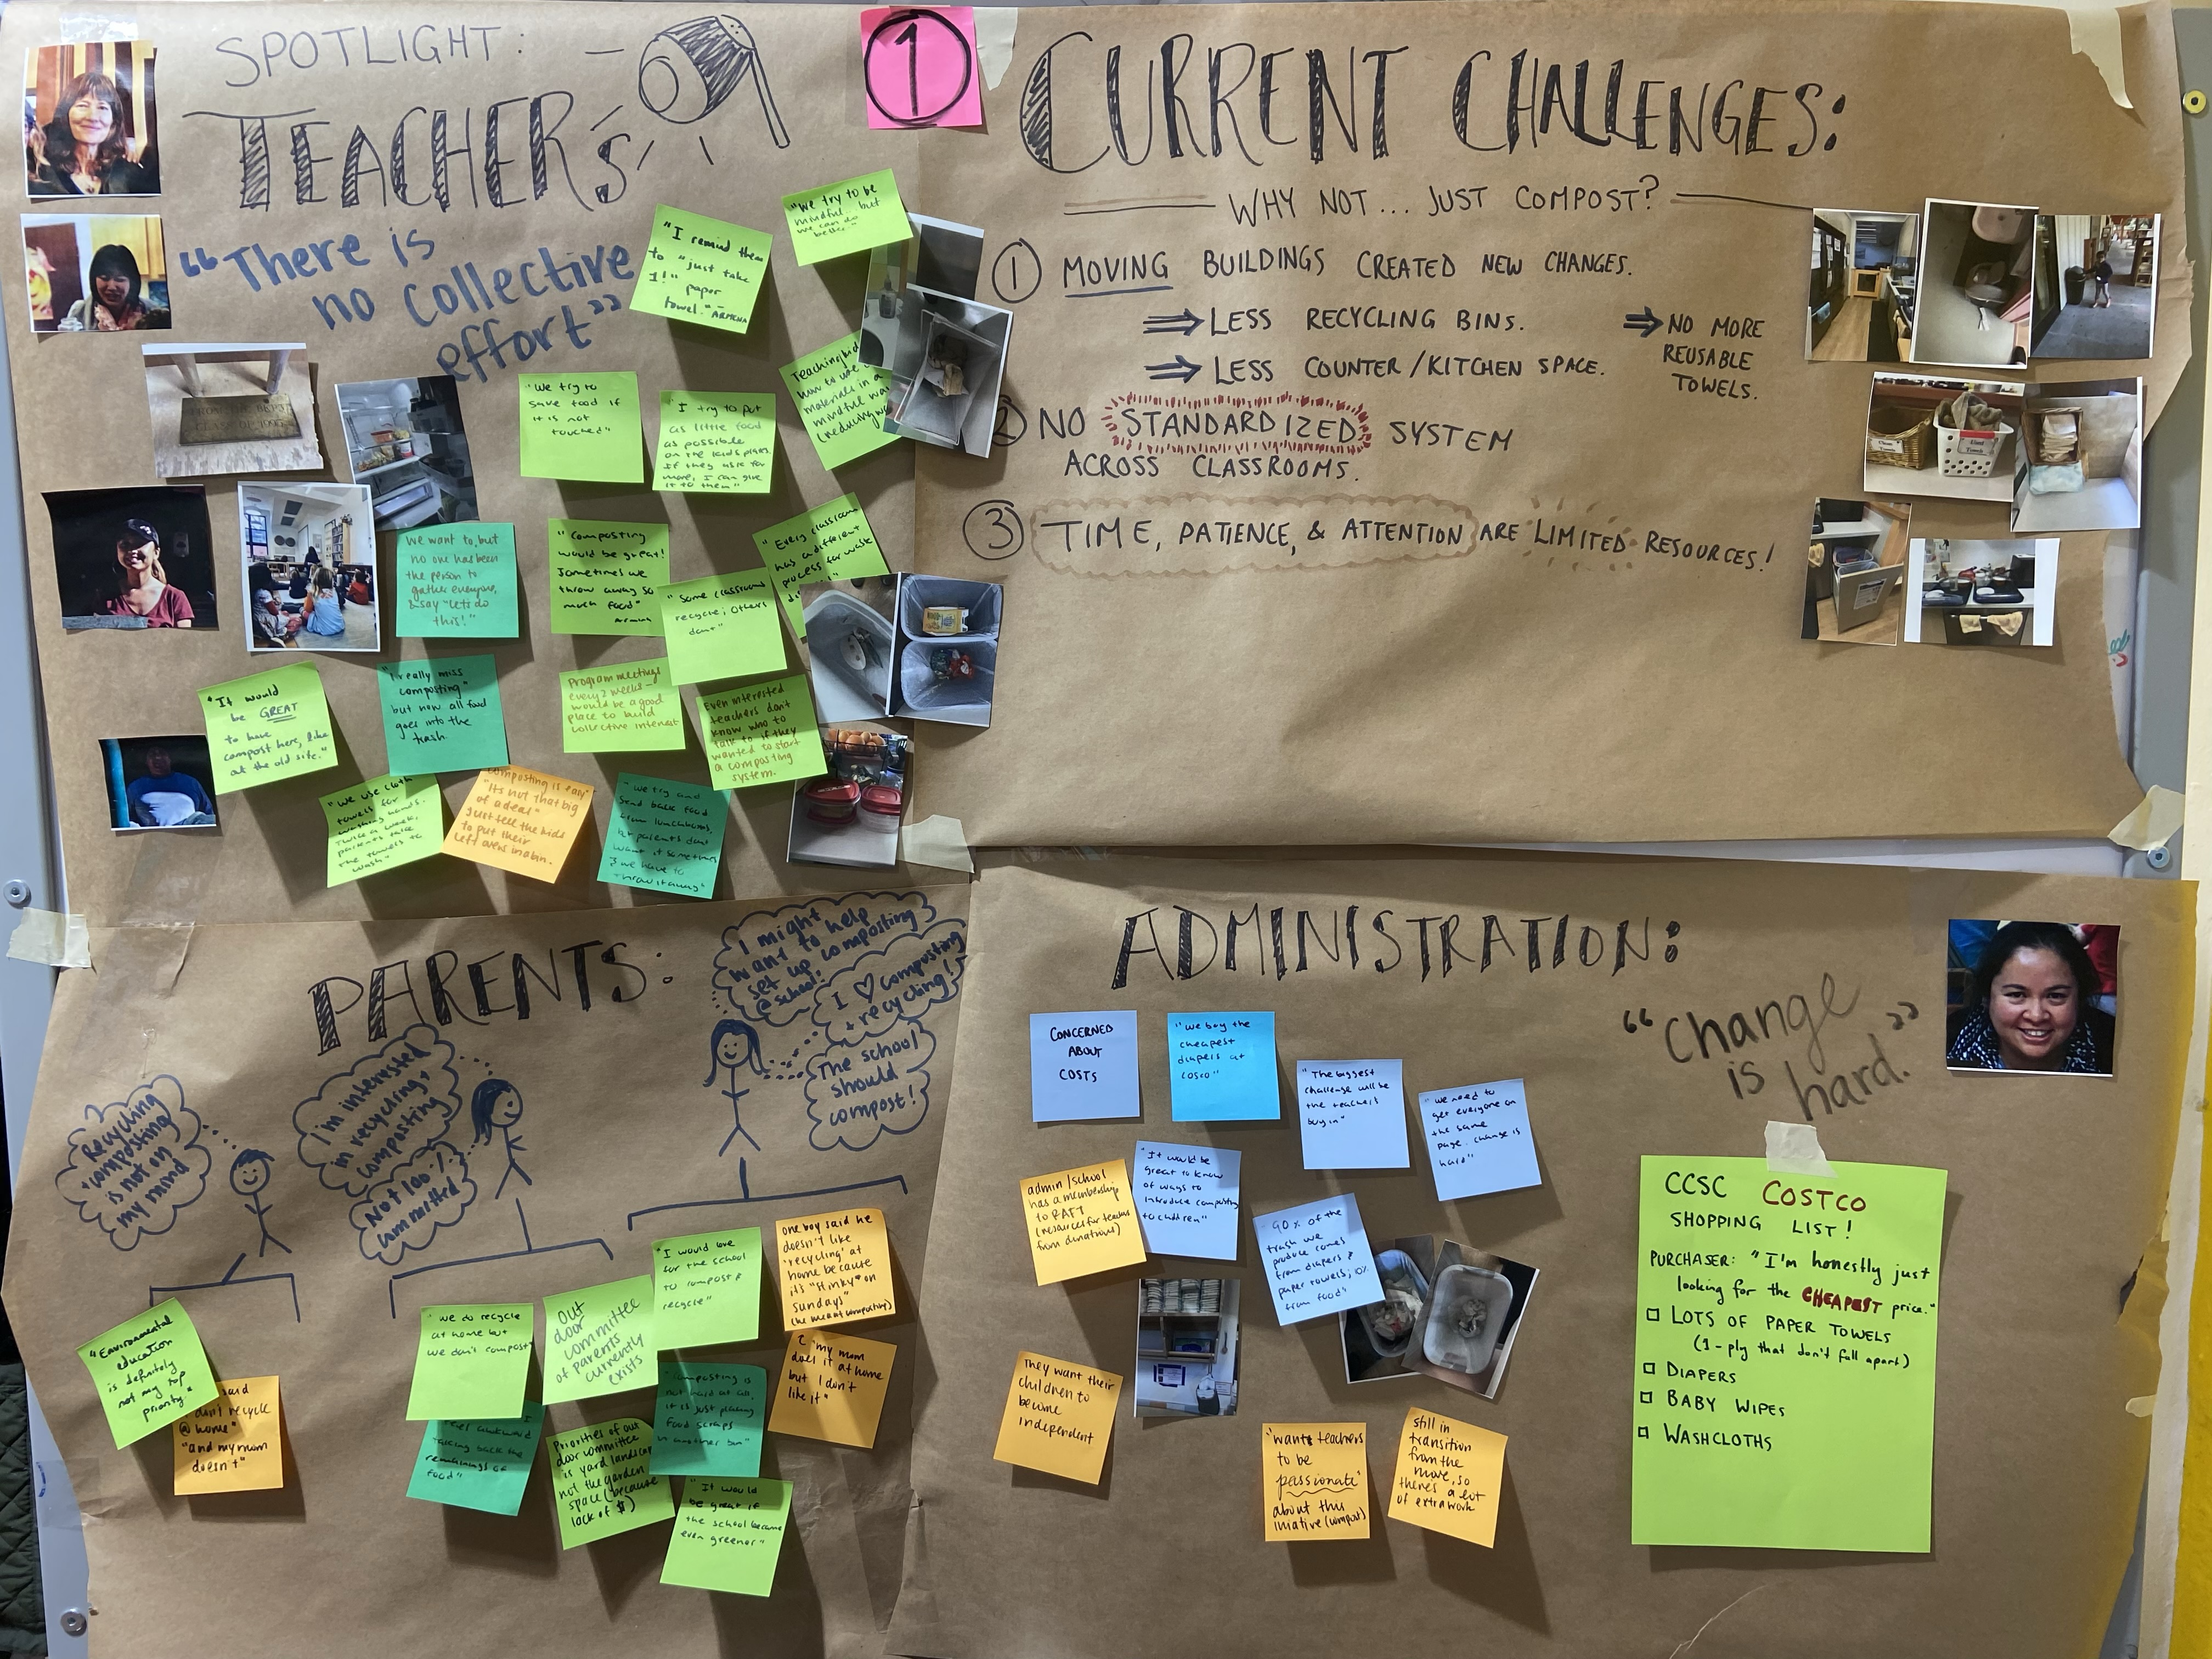 SPOTLIGHT:
TEACHERS
"There is
no collective
effort"
"We try to be
mindful but
we can do
better."
"I remind them
to "just take
1!" paper
towel." - ARMINA
"We try to
save food if
it is not
touched"
"I try to put
as little food
as possible
on the kids plates.
If they ask for
more, I can give
it to them"
Teaching kids
how to use
materials in a
mindful way
(reducing
We want to, but
no one has been
the person to
gather everyone,
& say "let's do
this!"
"Composting
would be great!
Sometimes we
throw away so
much food"
"Every classroom
has a different
process for waste
"Some classrooms
recycle; others
don't"
"It would
be GREAT
to have
compost here, like
at the old site."
"I really miss
composting"
but now all food
goes into the
trash
Program meetings
every 2 weeks -
would be a good
place to build
collective interest
Even interested
teachers don't
know who to
talk to if they
wanted to start
a composting
system.
"We use cloth
towels for
washing hands.
Twice a week,
parents take
the towels to
wash"
composting is easy
"It's not that big
of a deal"
just tell the kids
to put their
leftovers in a bin.
- we try and
send back food
from lunchboxes,
but parents don't
want it sometimes
& we have to
throw it away"
1
CURRENT CHALLENGES:
WHY NOT... JUST COMPOST?
① MOVING BUILDINGS CREATED NEW CHANGES.
⇒ LESS RECYCLING BINS.
⇒ LESS COUNTER/KITCHEN SPACE.
⇒ NO MORE
REUSABLE
TOWELS.
② NO STANDARDIZED SYSTEM
ACROSS CLASSROOMS.
③ TIME, PATIENCE, & ATTENTION ARE LIMITED RESOURCES!
PARENTS:
Recycling
+ composting
is not on
my mind
I'm interested
in recycling,
composting
Not 100%
committed
I might
want to help
set up composting
@ school!
I ♡ composting
+ recycling!
The school
should
compost!
"Environmental
education
is definitely
not my top
priority."
said
don't recycle
@ home"
"and my mom
doesn't"
"we do recycle
at home but
we don't compost"
feel awkward
taking back the
remainings of
food"
Out
door
committee
of parents
currently
exists
Priorities of out
door committee
is yard landscape
not the garden
space (because
lack of $)
"I would love
for the school
to compost &
recycle"
"composting is
not hard at all,
it is just placing
food scraps
in another bin"
"It would
be great if
the school became
even greener"
one boy said he
doesn't like
'recycling' at
home because
it's "stinky" on
Sundays"
(he meant composting)
"my mom
does it at home
but I don't
like it"
ADMINISTRATION:
"Change
is hard."
CONCERNED
ABOUT
COSTS
"we buy the
cheapest
diapers at
costco"
"The biggest
challenge will be
the teachers
buy in"
"we need to
get everyone on
the same
page. change is
hard"
admin/school
has a membership
to RAFT
(resources for teachers
from donations)
"It would be
great to know
of ways to
introduce composting
to children"
90% of the
trash we
produce comes
from diapers &
paper towels; 10%
from food"
They want their
children to
become
independent
"wants teachers
to be
passionate"
about this
iniative (compost)
still in
transition
from the
move, so
there's a lot
of extra work
CCSC COSTCO
SHOPPING LIST!
PURCHASER: "I'm honestly just
looking for the CHEAPEST price."
□ LOTS OF PAPER TOWELS
(1-ply that don't fall apart)
□ DIAPERS
□ BABY WIPES
□ WASHCLOTHS